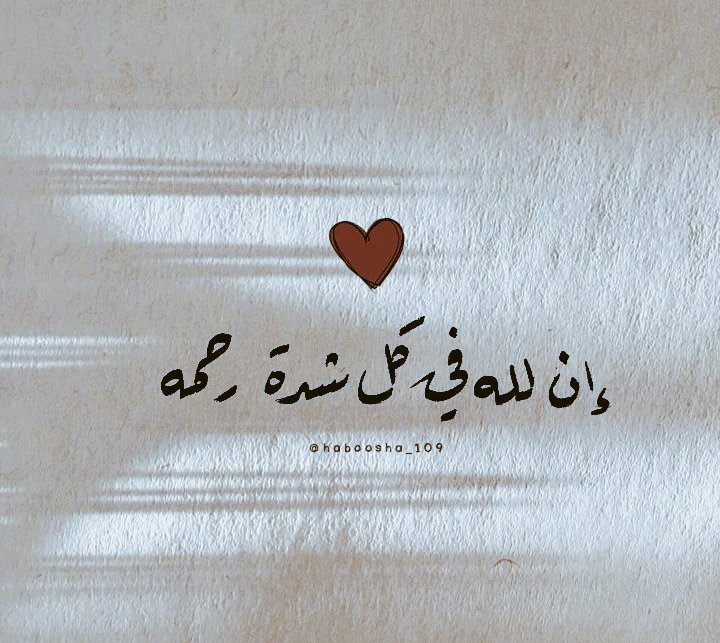 إن لله في كل شدة رحمه
@haboosha_109